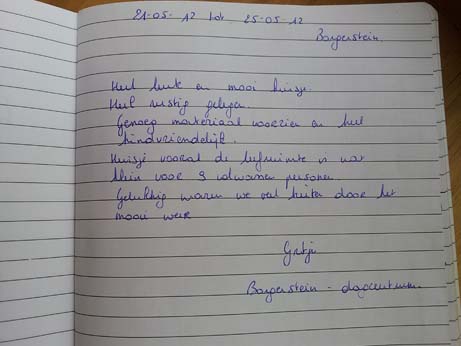 21-05-12 tot 25-05-12
Borgerstein
Heel leuk en mooi huisje.
Heel rustig gelegen.
Genoeg materiaal voorzien en heel
kindvriendelijk.
Huisje vooral de leefruimte is wat
klein voor 9 volwassen personen.
Gelukkig waren we veel buiten door het
mooi weer
Greetje
Borgerstein - dagcentrum